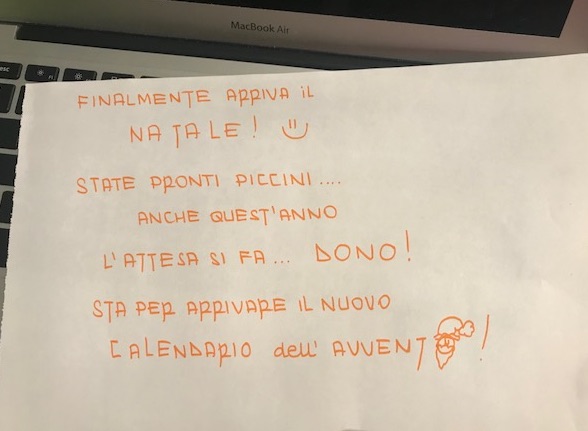 MacBook Air
esc
FINALMENTE ARRIVA iL
NATALE! :)
STATE PRONTI PICCINI....
ANCHE QUEST'ANNO
L'ATTESA SI FA... DONO!
STA PER ARRIVARE IL NUOVO
CALENDARIO dell' AVVENTO!